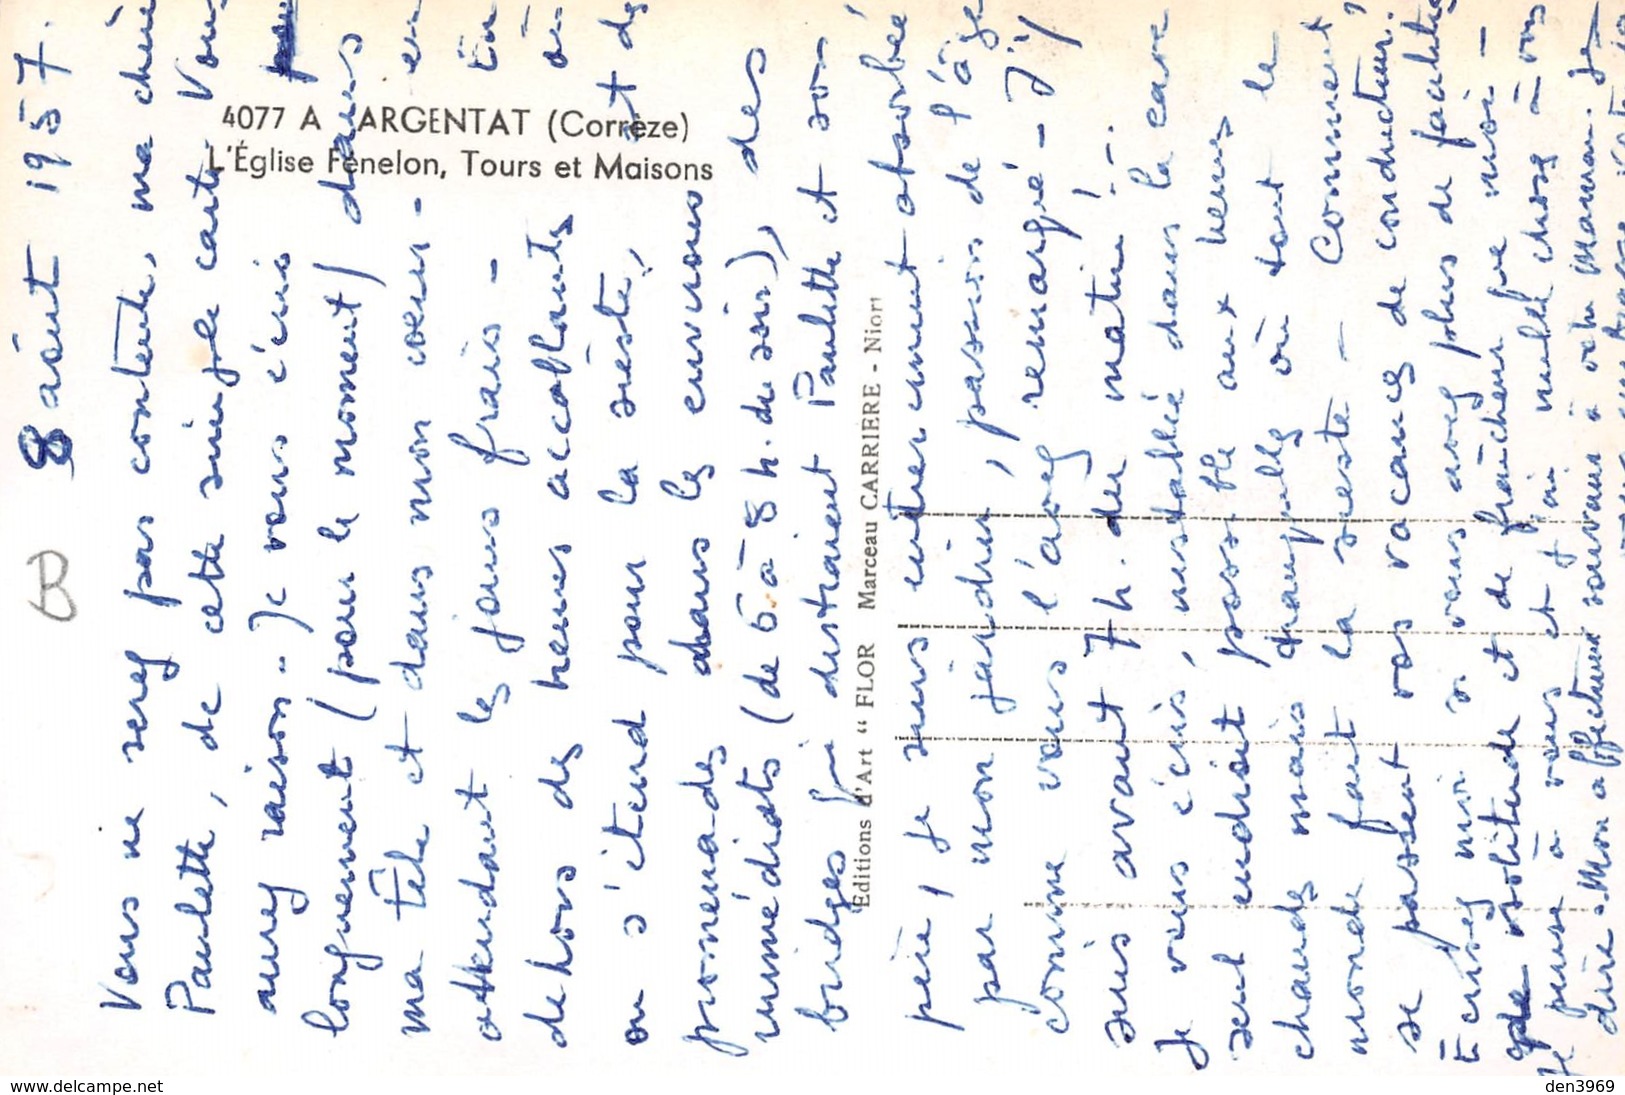 8 août 1957.
B
Vous ne serez pas contente, ma chère
Paulette, de cette simple carte. Vous
aurez raison.. Je vous écris
longuement (pour le moment) dans
ma tête et dans mon coeur - en
attendant les jours frais - En
dehors des heures accablantes où
on s'étend pour la sieste, et de
promenades dans les environs
immédiats (de 6 à 8 h. du soir), des
bridges qui distraient Paulette et son
père, je suis entièrement absorbée
par mon jardin, passion de l'âge
comme vous l'avez remarqué - J'y
suis avant 7 h. du matin !..
Je vous écris, installée dans la cave
seul endroit possible aux heures
chaudes mais tranquilles où tout le
monde fait la sieste - Comment
se passent vos vacances de conducteur,
Ecrivez moi si vous avez plus de facilités
de solitude et de fraîcheur que moi -
Je pense à vous et j'ai mille choses à vous
dire. Mon affectueux souvenir à votre maman. Je
4077 A ARGENTAT (Corrèze)
L'Église Fénelon, Tours et Maisons
Editions d'Art “ FLOR Marceau CARRIERE - Niort
www.delcampe.net
den3969